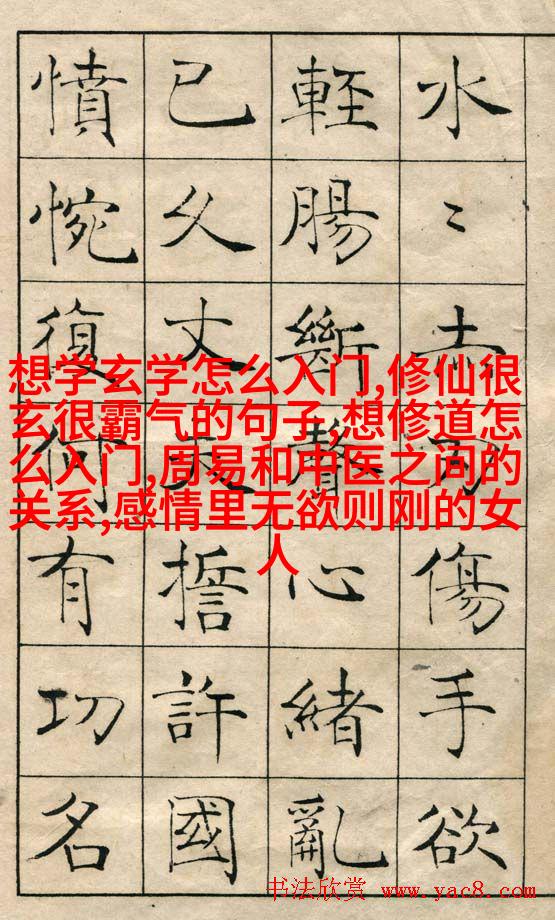 水〻赤刃傷手欲
輕腸斷聲心緒亂
已久丈夫誓許國
憤惋復何有功名
想学玄学怎么入门,修仙很
玄很霸气的句子,想修道怎
么入门,周易和中医之间的
关系,感情里无欲则刚的女
人
书法欣赏 www.yac8.com